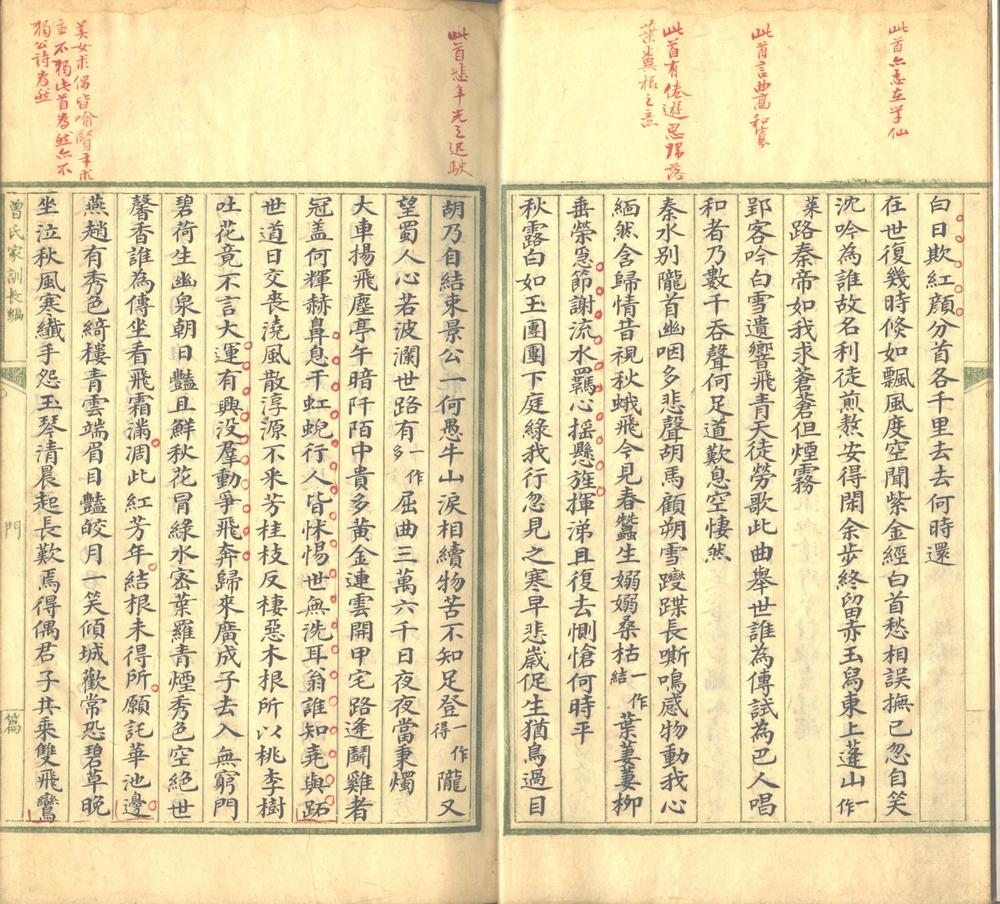 此首亦志在學仙
此首言曲高和寡
此首有倦遊思歸落
葉糞根之意
白日欺紅顏分首各千里去去何時還
在世復幾時倏如飄風度空聞紫金經白首愁相誤撫已忽自笑
沈吟為誰故名利徒煎熬安得閑余步終留赤玉舄東上蓬山一作
萊路秦帝如我求蒼蒼但煙霧
郢客吟白雪遺響飛青天徒勞歌此曲舉世誰為傳試為巴人唱
和者乃數千吞聲何足道歎息空悽然
秦水別隴首幽咽多悲聲胡馬顧朔雪躞蹀長嘶鳴感物動我心
緬然含歸情昔視秋蛾飛今見春蠶生嫋嫋桑枯一作結葉萋萋柳
垂榮急節謝流水羈心搖懸旌揮涕且復去惻愴何時平
秋露白如玉團團下庭綠我行忽見之寒早悲歲促生猶鳥過目
此首悲年光之迅駛
美女求偶皆喻賢才求
主不獨此首為然亦不
獨公詩為然
胡乃自結束景公一何愚牛山淚相續物苦不知足登一作得隴又
望蜀人心若波瀾世路有一作多屈曲三萬六千日夜夜當秉燭
大車揚飛塵亭午暗阡陌中貴多黃金連雲開甲宅路逢鬭雞者
冠盖何輝赫鼻息干虹蜺行人皆怵惕世無洗耳翁誰知堯與跖
世道日交喪澆風散淳源不采芳桂枝反棲惡木根所以桃李樹
吐花竟不言大運有興没羣動爭飛奔歸來廣成子去入無窮門
碧荷生幽泉朝日豔且鮮秋花冒綠水密葉羅青煙秀色空絕世
馨香誰為傳坐看飛霜滿凋此紅芳年結根未得所願託華池邊
燕趙有秀色綺樓青雲端眉目豔皎月一笑傾城歡常恐碧草晚
坐泣秋風寒纖手怨玉琴清晨起長歎焉得偶君子共乘雙飛鸞
曾氏家訓長編
門
篇